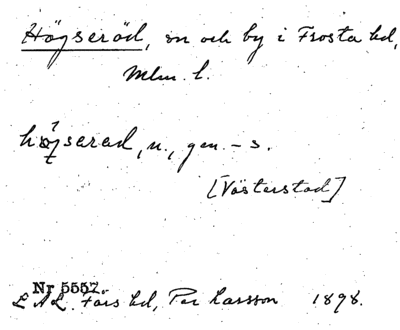 Högseröd, sn och by i Frosta hd,
Mlm. l.
högserad, n., gen. -s.
[Västerstad]
Nr 5557.
L.A.L. Färs hd, Per Larsson 1898.